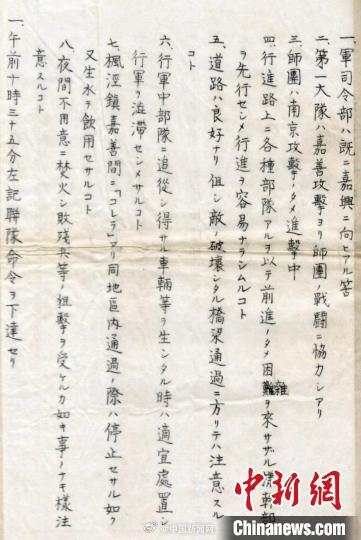 一、軍司令部ハ既ニ嘉興ニ向ヒアル筈
二、第一大隊ハ嘉善攻撃ヨリ師團ノ戰鬪ニ協力シアリ
三、師團ハ南京攻撃ノタメ進撃中
四、行進路上ニ各種部隊アルヲ以テ前進ノタメ困難ヲ來サザル 幹部
ヲ先行セシメ行進ヲ容易ナラシムルコト
五、道路ハ良好ナリ 但シ敵ノ破壞シタル橋梁通過ニ方リテハ注意ス
コト
六、行軍中部隊ニ追從シ得サル車輛等ヲ生シタル時ハ適宜處置シ
行軍ヲ澁滯セシメサルコト
七、楓涇鎮嘉善間ニ「コレラ」アリ同地區内通過ノ際ハ停止セサル如ク
又生水ヲ飲用セサルコト
八、夜間不用意ニ焚火シ敗殘兵等ノ狙撃ヲ受ケルカ如キ事ノナキ様注
意スルコト
一、午前十時三十五分左記聯隊命令ヲ下達セリ
中新网
Chinanews.com
@中国新闻网